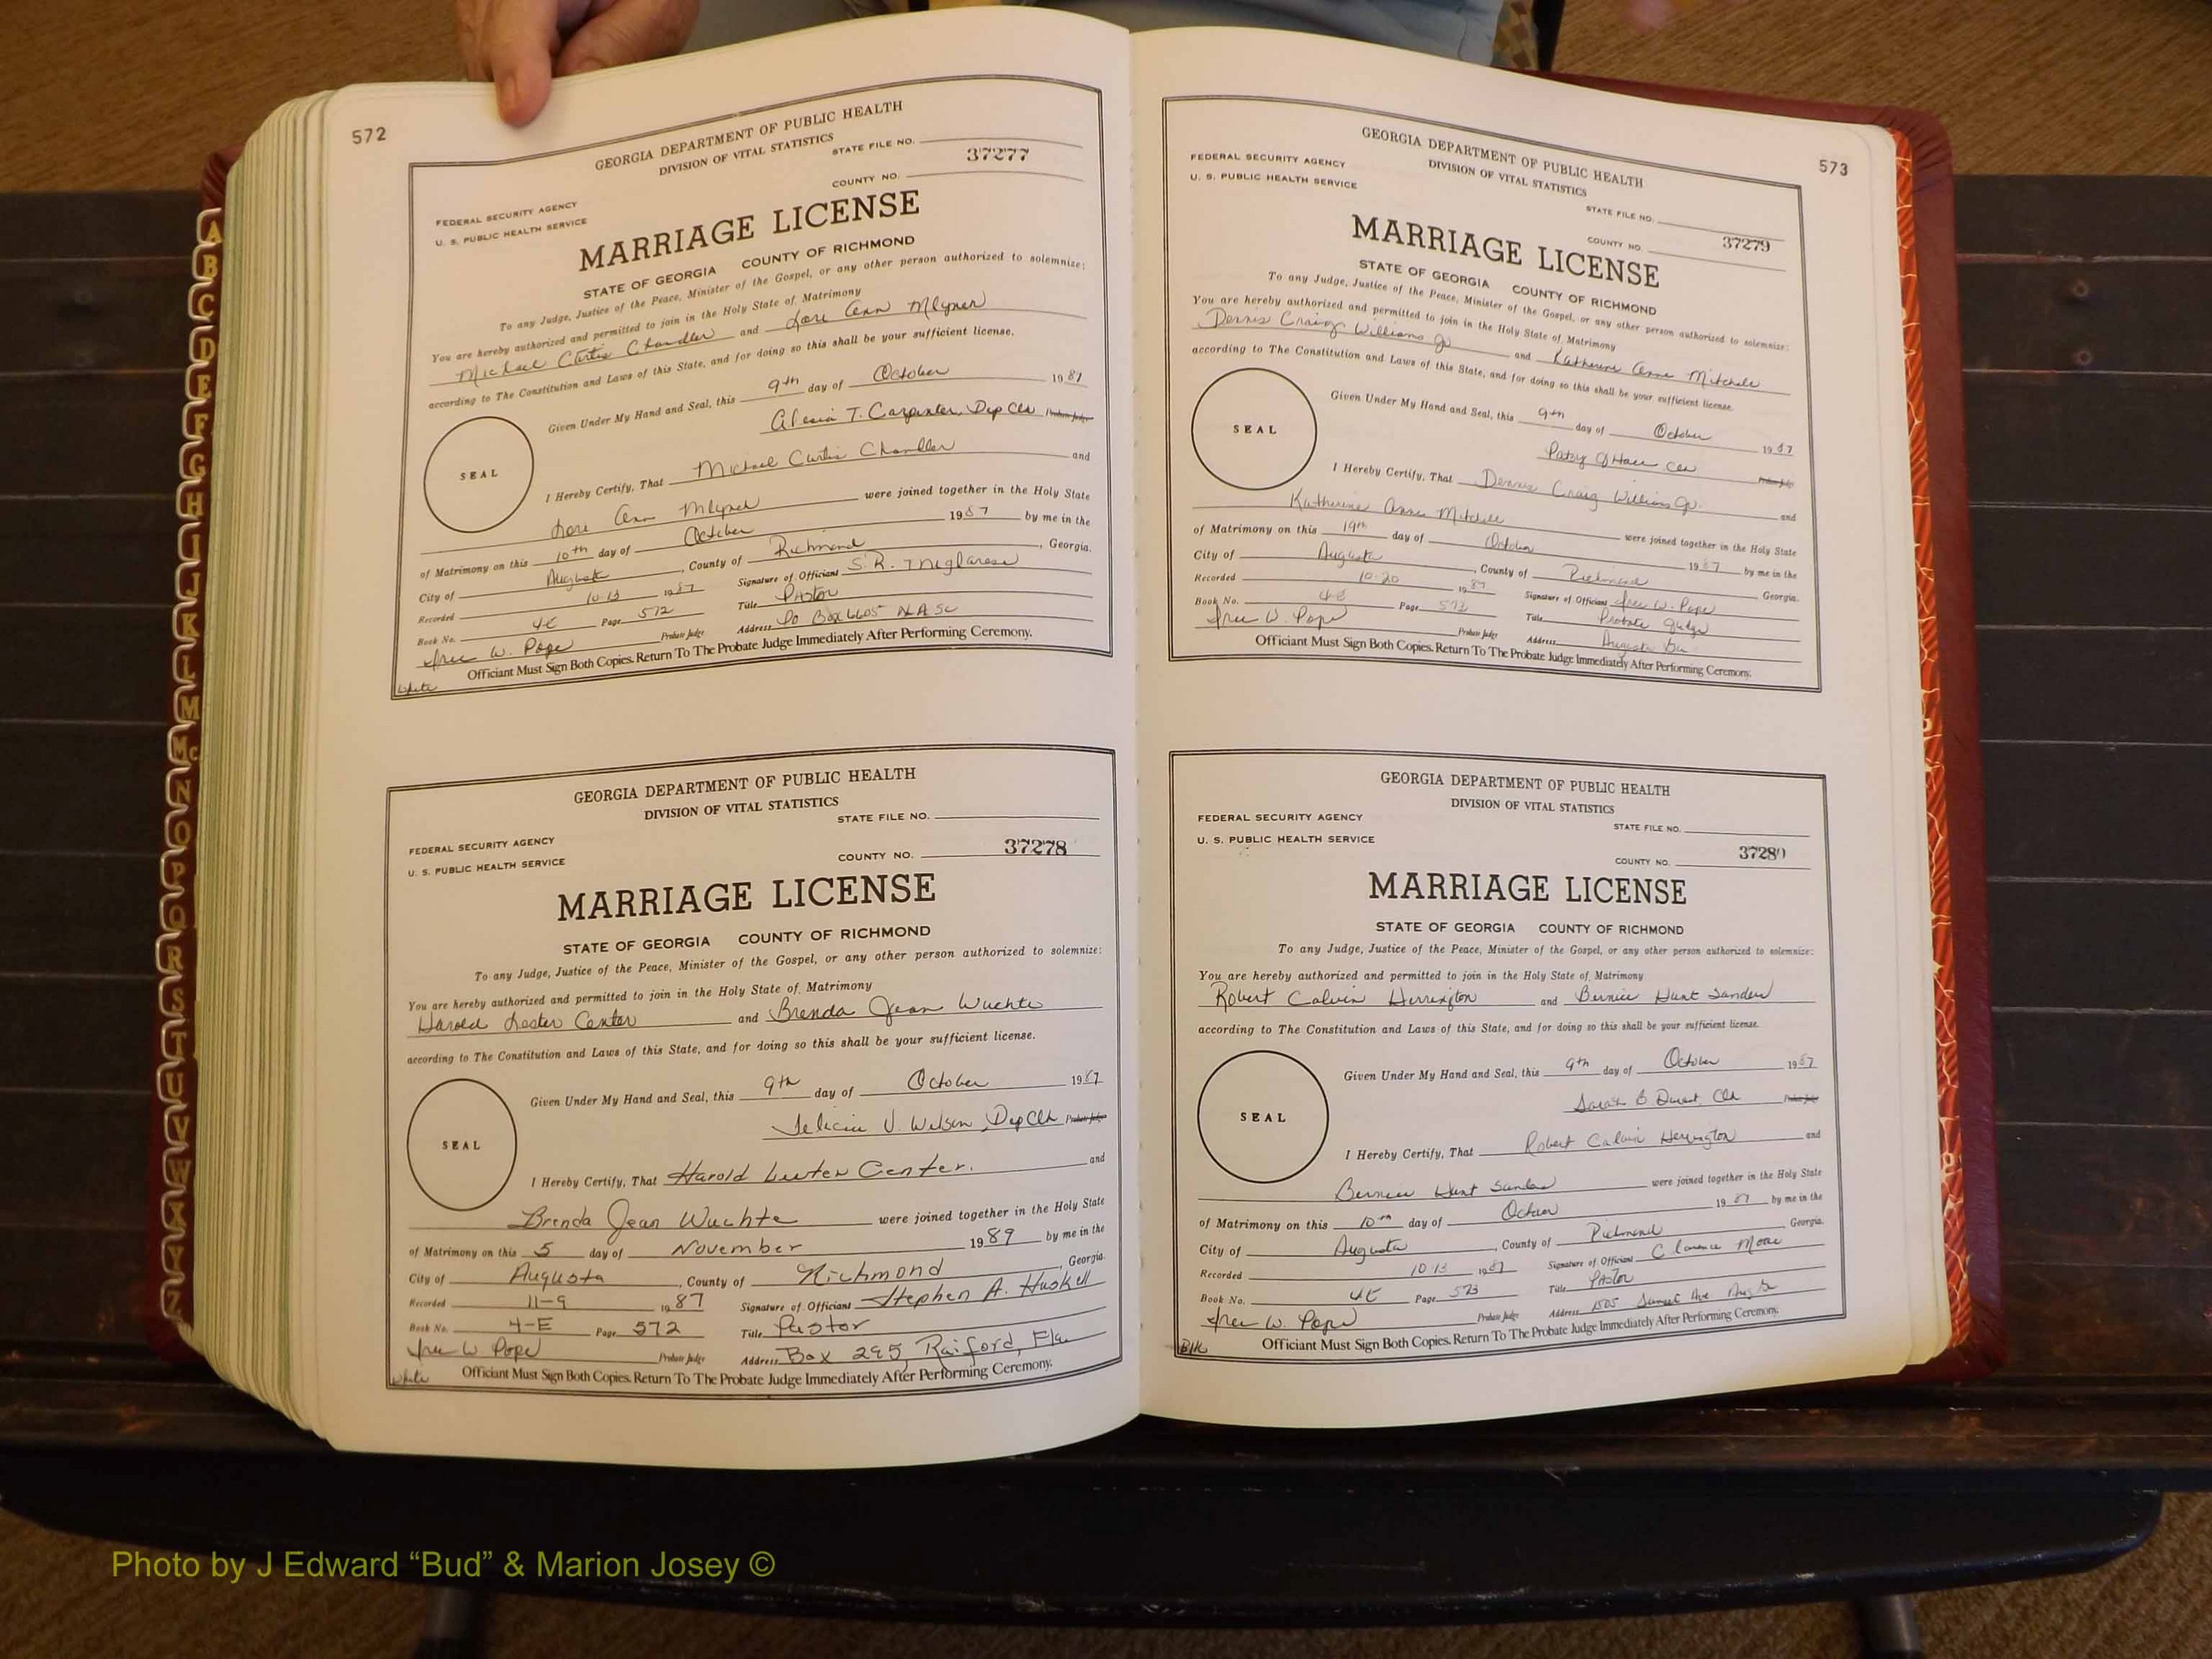 572
GEORGIA DEPARTMENT OF PUBLIC HEALTH
DIVISION OF VITAL STATISTICS
STATE FILE NO.
37277
COUNTY NO.
FEDERAL SECURITY AGENCY
U. S. PUBLIC HEALTH SERVICE
MARRIAGE LICENSE
STATE OF GEORGIA COUNTY OF RICHMOND
To any Judge, Justice of the Peace, Minister of the Gospel, or any other person authorized to solemnize:
You are hereby authorized and permitted to join in the Holy State of Matrimony
Michael Curtis Chandler and Lori Ann Mlyner
according to The Constitution and Laws of this State, and for doing so this shall be your sufficient license.
Given Under My Hand and Seal, this 9th day of October 1987
Alesia T. Carpenter, Dep Clk Probate Judge
SEAL
I Hereby Certify, That Michael Curtis Chandler and
Lori Ann Mlyner were joined together in the Holy State
of Matrimony on this 10th day of October 1987 by me in the
City of Augusta, County of Richmond, Georgia.
Recorded 10-13 1987 Signature of Officiant S. R.
Book No. 4-E Page 572 Title Pastor
W. Pope Probate Judge Address PO Box 6605 N.A. SC
Officiant Must Sign Both Copies. Return To The Probate Judge Immediately After Performing Ceremony.
White
GEORGIA DEPARTMENT OF PUBLIC HEALTH
DIVISION OF VITAL STATISTICS
STATE FILE NO.
FEDERAL SECURITY AGENCY
U. S. PUBLIC HEALTH SERVICE
COUNTY NO. 37278
MARRIAGE LICENSE
STATE OF GEORGIA COUNTY OF RICHMOND
To any Judge, Justice of the Peace, Minister of the Gospel, or any other person authorized to solemnize:
You are hereby authorized and permitted to join in the Holy State of Matrimony
Harold Lester Center and Brenda Jean Wuchte
according to The Constitution and Laws of this State, and for doing so this shall be your sufficient license.
Given Under My Hand and Seal, this 9th day of October 1987
Felicia V. Wilson, Dep Clk Probate Judge
SEAL
I Hereby Certify, That Harold Center. and
Brenda Jean Wuchte were joined together in the Holy State
of Matrimony on this 5 day of November 1989 by me in the
City of Augusta, County of Richmond, Georgia.
Recorded 11-9 1987 Signature of Officiant Stephen A. Haskell
Book No. 4-E Page 572 Title Pastor
W. Pope Probate Judge Address Box 295, Raiford, Fla
Officiant Must Sign Both Copies. Return To The Probate Judge Immediately After Performing Ceremony.
White
573
GEORGIA DEPARTMENT OF PUBLIC HEALTH
DIVISION OF VITAL STATISTICS
FEDERAL SECURITY AGENCY
U. S. PUBLIC HEALTH SERVICE
STATE FILE NO.
COUNTY NO. 37279
MARRIAGE LICENSE
STATE OF GEORGIA COUNTY OF RICHMOND
To any Judge, Justice of the Peace, Minister of the Gospel, or any other person authorized to solemnize:
You are hereby authorized and permitted to join in the Holy State of Matrimony
Dennis Craig Williams Jr and Katherine Anne Mitchell
according to The Constitution and Laws of this State, and for doing so this shall be your sufficient license.
Given Under My Hand and Seal, this 9th day of October 1987
Patsy Clk Probate Judge
SEAL
I Hereby Certify, That Dennis Craig Williams Jr. and
Katherine Anne Mitchell were joined together in the Holy State
of Matrimony on this 19th day of October 1987 by me in the
City of Augusta, County of Richmond Georgia.
Recorded 10-20 1987 Signature of Officiant W. Pope
Book No. 4-E Page 573 Title Probate Judge
W. Pope Probate Judge Address Augusta Ga
Officiant Must Sign Both Copies. Return To The Probate Judge Immediately After Performing Ceremony.
GEORGIA DEPARTMENT OF PUBLIC HEALTH
DIVISION OF VITAL STATISTICS
FEDERAL SECURITY AGENCY
STATE FILE NO.
U. S. PUBLIC HEALTH SERVICE
COUNTY NO. 37280
MARRIAGE LICENSE
STATE OF GEORGIA COUNTY OF RICHMOND
To any Judge, Justice of the Peace, Minister of the Gospel, or any other person authorized to solemnize:
You are hereby authorized and permitted to join in the Holy State of Matrimony
Robert Calvin Herrington and Bernice Hunt Sanders
according to The Constitution and Laws of this State, and for doing so this shall be your sufficient license.
Given Under My Hand and Seal, this 9th day of October 1987
Sarah B Clk Probate Judge
SEAL
I Hereby Certify, That Robert Calvin Herrington and
Bernice Hunt Sanders were joined together in the Holy State
of Matrimony on this 10th day of October 1987 by me in the
City of Augusta, County of Richmond Georgia.
Recorded 10 13 1987 Signature of Officiant Clarence Moore
Book No. 4E Page 573 Title Pastor
W. Pope Probate Judge Address 1505 Sunset Ave Augusta
Officiant Must Sign Both Copies. Return To The Probate Judge Immediately After Performing Ceremony.
Blk
A
B
C
D
E
F
G
H
I
J
K
L
M
Mc
N
O
P
Q
R
S
T
U
V
W
X
Y
Z
Photo by J Edward “Bud” & Marion Josey ©